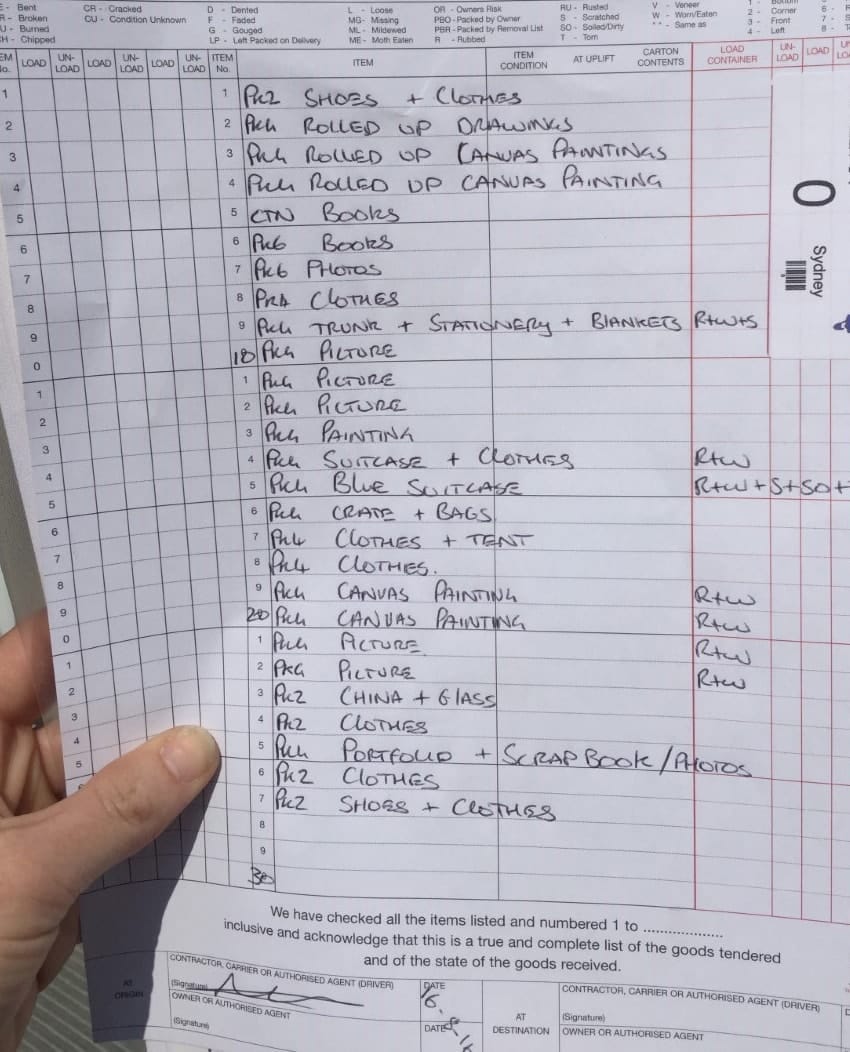 E - Bent CR - Cracked D - Dented L - Loose OR - Owners Risk RU - Rusted V - Veneer
R - Broken CU - Condition Unknown F - Faded MG - Missing PBO - Packed by Owner S - Scratched W - Worn/Eaten 2 - Corner
U - Burned G - Gouged ML - Mildewed PBR - Packed by Removal List SO - Soiled/Dirty ** - Same as 3 - Front
CH - Chipped LP - Left Packed on Delivery ME - Moth Eaten R - Rubbed T - Torn 4 - Left
LOAD UN-LOAD LOAD UN-LOAD LOAD UN-LOAD ITEM No. ITEM ITEM CONDITION AT UPLIFT CARTON CONTENTS LOAD CONTAINER UN-LOAD LOAD
1 1 PK2 SHOES + CLOTHES
2 2 PKG ROLLED UP DRAWINGS
3 3 PKG ROLLED UP CANVAS PAINTINGS
4 4 PKG ROLLED UP CANVAS PAINTING
5 5 CTN BOOKS
6 6 PK6 BOOKS
7 7 PK6 PHOTOS
8 8 PK4 CLOTHES
9 9 PKG TRUNK + STATIONERY + BLANKETS R+W+S
0 10 PKG PICTURE
1 1 PKG PICTURE
2 2 PKG PICTURE
3 3 PKG PAINTING
4 4 PKG SUITCASE + CLOTHES R+W
5 5 PKG BLUE SUITCASE R+W+S+SO+
6 6 PKG CRATE + BAGS
7 7 PK4 CLOTHES + TENT
8 8 PK4 CLOTHES.
9 9 PKG CANVAS PAINTING R+W
0 20 PKG CANVAS PAINTING R+W
1 1 PKG PICTURE R+W
2 2 PKG PICTURE R+W
3 3 PK2 CHINA + GLASS
4 4 PK2 CLOTHES
5 5 PKG PORTFOLIO + SCRAP BOOK/PHOTOS
6 PK2 CLOTHES
7 PK2 SHOES + CLOTHES
8
9
30
O
Sydney
We have checked all the items listed and numbered 1 to ...................
inclusive and acknowledge that this is a true and complete list of the goods tendered
and of the state of the goods received.
AT ORIGIN
CONTRACTOR, CARRIER OR AUTHORISED AGENT (DRIVER)
(Signature)
DATE
OWNER OR AUTHORISED AGENT
(Signature)
DATE
AT DESTINATION
CONTRACTOR, CARRIER OR AUTHORISED AGENT (DRIVER)
(Signature)
OWNER OR AUTHORISED AGENT